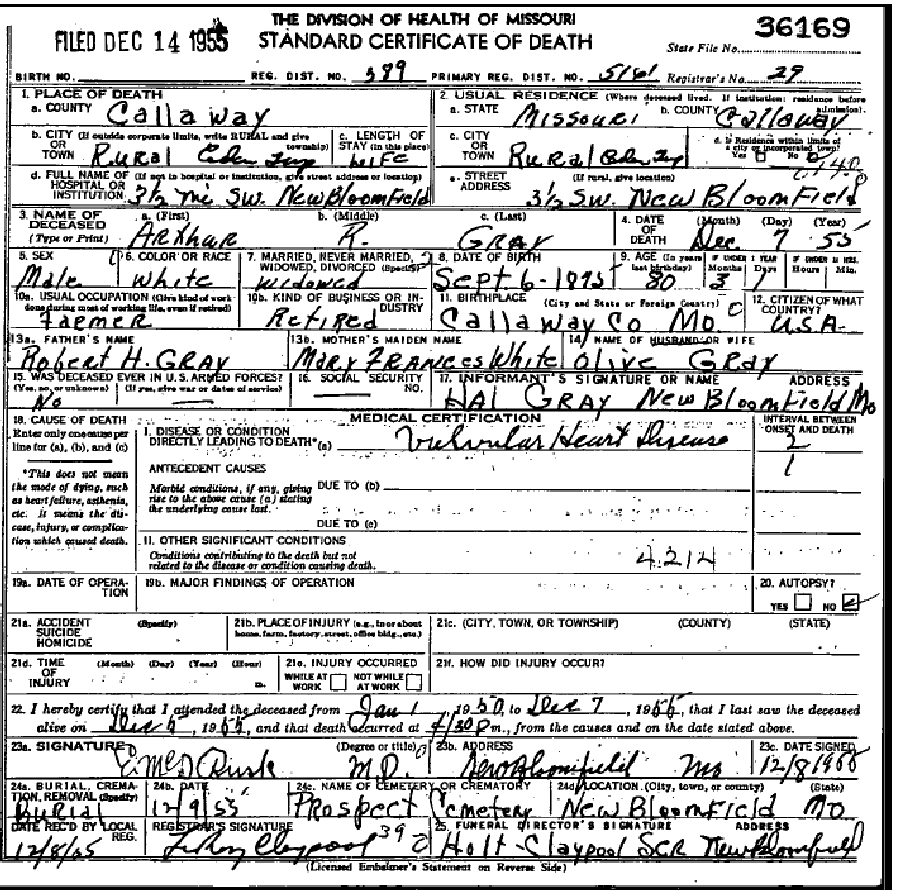 THE DIVISION OF HEALTH OF MISSOURI
FILED DEC 14 1955 STANDARD CERTIFICATE OF DEATH
36169
State File No.
BIRTH NO. REG. DIST. NO. 389 PRIMARY REG. DIST. NO. 5161 Registrar's No. 29
1. PLACE OF DEATH
a. COUNTY Callaway
2. USUAL RESIDENCE (Where deceased lived. If institution: residence before admission).
a. STATE Missouri b. COUNTY Callaway
b. CITY (If outside corporate limits, write RURAL and give township)
OR TOWN Rural
c. LENGTH OF STAY (in this place) Life
c. CITY OR TOWN Rural
d. Is Residence within limits of a city or incorporated town?
Yes No
d. FULL NAME OF HOSPITAL OR INSTITUTION (If not in hospital or institution, give street address or location)
3½ mi SW. New Bloomfield
e. STREET ADDRESS (If rural, give location)
3½ SW. New Bloomfield
3. NAME OF DECEASED (Type or Print)
a. (First) Arthur b. (Middle) R. c. (Last) Gray
4. DATE OF DEATH (Month) (Day) (Year) Dec. 7 55
5. SEX Male
6. COLOR OR RACE White
7. MARRIED, NEVER MARRIED, WIDOWED, DIVORCED (Specify) Widowed
8. DATE OF BIRTH Sept 6-1875
9. AGE (In years last birthday) 80 IF UNDER 1 YEAR Months 3 Days 1 IF UNDER 24 HRS. Hours Min.
10a. USUAL OCCUPATION (Give kind of work done during most of working life, even if retired) Farmer
10b. KIND OF BUSINESS OR INDUSTRY Retired
11. BIRTHPLACE (City and State or Foreign Country) Callaway Co Mo.
12. CITIZEN OF WHAT COUNTRY? U.S.A.
13a. FATHER'S NAME Robert H. GRAY
13b. MOTHER'S MAIDEN NAME Mary Frances White
14. NAME OF HUSBAND OR WIFE Olive Gray
15. WAS DECEASED EVER IN U.S. ARMED FORCES? (Yes, no, or unknown) (If yes, give war or dates of service) No
16. SOCIAL SECURITY NO.
17. INFORMANT'S SIGNATURE OR NAME ADDRESS
HAL GRAY New Bloomfield Mo
18. CAUSE OF DEATH
Enter only one cause per line for (a), (b), and (c)
*This does not mean the mode of dying, such as heart failure, asthenia, etc. It means the disease, injury, or complication which caused death.
MEDICAL CERTIFICATION
I. DISEASE OR CONDITION DIRECTLY LEADING TO DEATH* (a) Valvular Heart Disease
INTERVAL BETWEEN ONSET AND DEATH
ANTECEDENT CAUSES
Morbid conditions, if any, giving rise to the above cause (a) stating the underlying cause last.
DUE TO (b)
DUE TO (c)
II. OTHER SIGNIFICANT CONDITIONS
Conditions contributing to the death but not related to the disease or condition causing death.
4214
19a. DATE OF OPERATION
19b. MAJOR FINDINGS OF OPERATION
20. AUTOPSY?
YES NO
21a. ACCIDENT SUICIDE HOMICIDE (Specify)
21b. PLACE OF INJURY (e.g., in or about home, farm, factory, street, office bldg., etc.)
21c. (CITY, TOWN, OR TOWNSHIP) (COUNTY) (STATE)
21d. TIME OF INJURY (Month) (Day) (Year) (Hour) m.
21e. INJURY OCCURRED WHILE AT WORK NOT WHILE AT WORK
21f. HOW DID INJURY OCCUR?
22. I hereby certify that I attended the deceased from Jan 1, 1950, to Dec 7, 1955, that I last saw the deceased
alive on Dec 5, 1955, and that death occurred at 4:30 p m., from the causes and on the date stated above.
23a. SIGNATURE (Degree or title) M.D.
23b. ADDRESS New Bloomfield Mo
23c. DATE SIGNED 12/8 1955
24a. BURIAL, CREMATION, REMOVAL (Specify) Burial
24b. DATE 12/9/55
24c. NAME OF CEMETERY OR CREMATORY Prospect Cemetery
24d. LOCATION (City, town, or county) (State) New Bloomfield Mo
DATE REC'D BY LOCAL REG. 12/8/55
REGISTRAR'S SIGNATURE Claypool
25. FUNERAL DIRECTOR'S SIGNATURE ADDRESS
Holt-Claypool New Bloomfield
(Licensed Embalmer's Statement on Reverse Side)